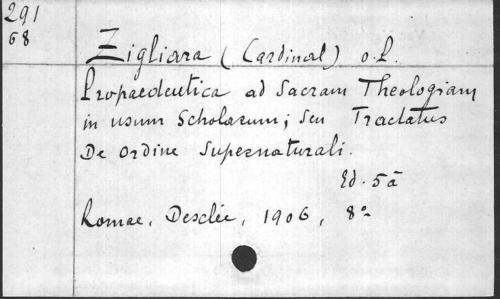 291
68
Zigliara (Cardinal) o.P.
Propaedeutica ad Sacram Theologiam
in usum Scholarum; seu Tractatus
De Ordine Supernaturali.
Ed. 5ā
Romae, Desclée, 1906, 8º